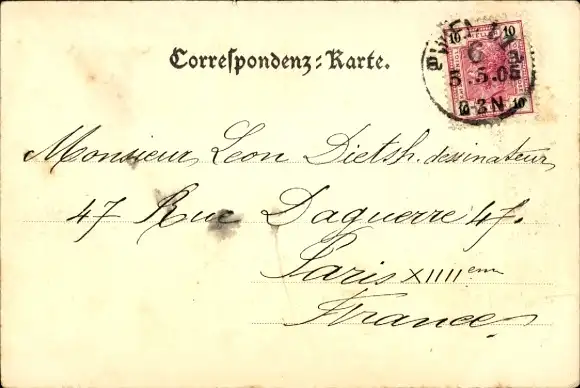 Correspondenz-Karte.
10 10
5.5.05
2-3N
10 10
Monsieur Leon Dietsh. dessinateur
47 Rue Daguerre 47.
Paris XIIIIem
France